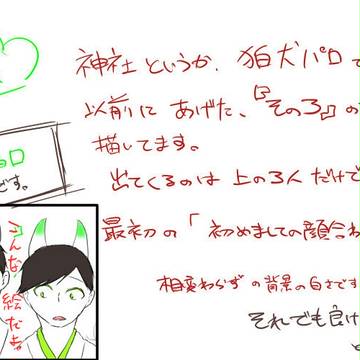 神社というか、狛犬パロで
以前にあげた、『その3』の
描いてます。
出てくるのは上の3人だけで
最初の「初めましての顔合わ
相変わらずの背景の白さです
それでも良け
ロ
です。
こんな
絵だよ。